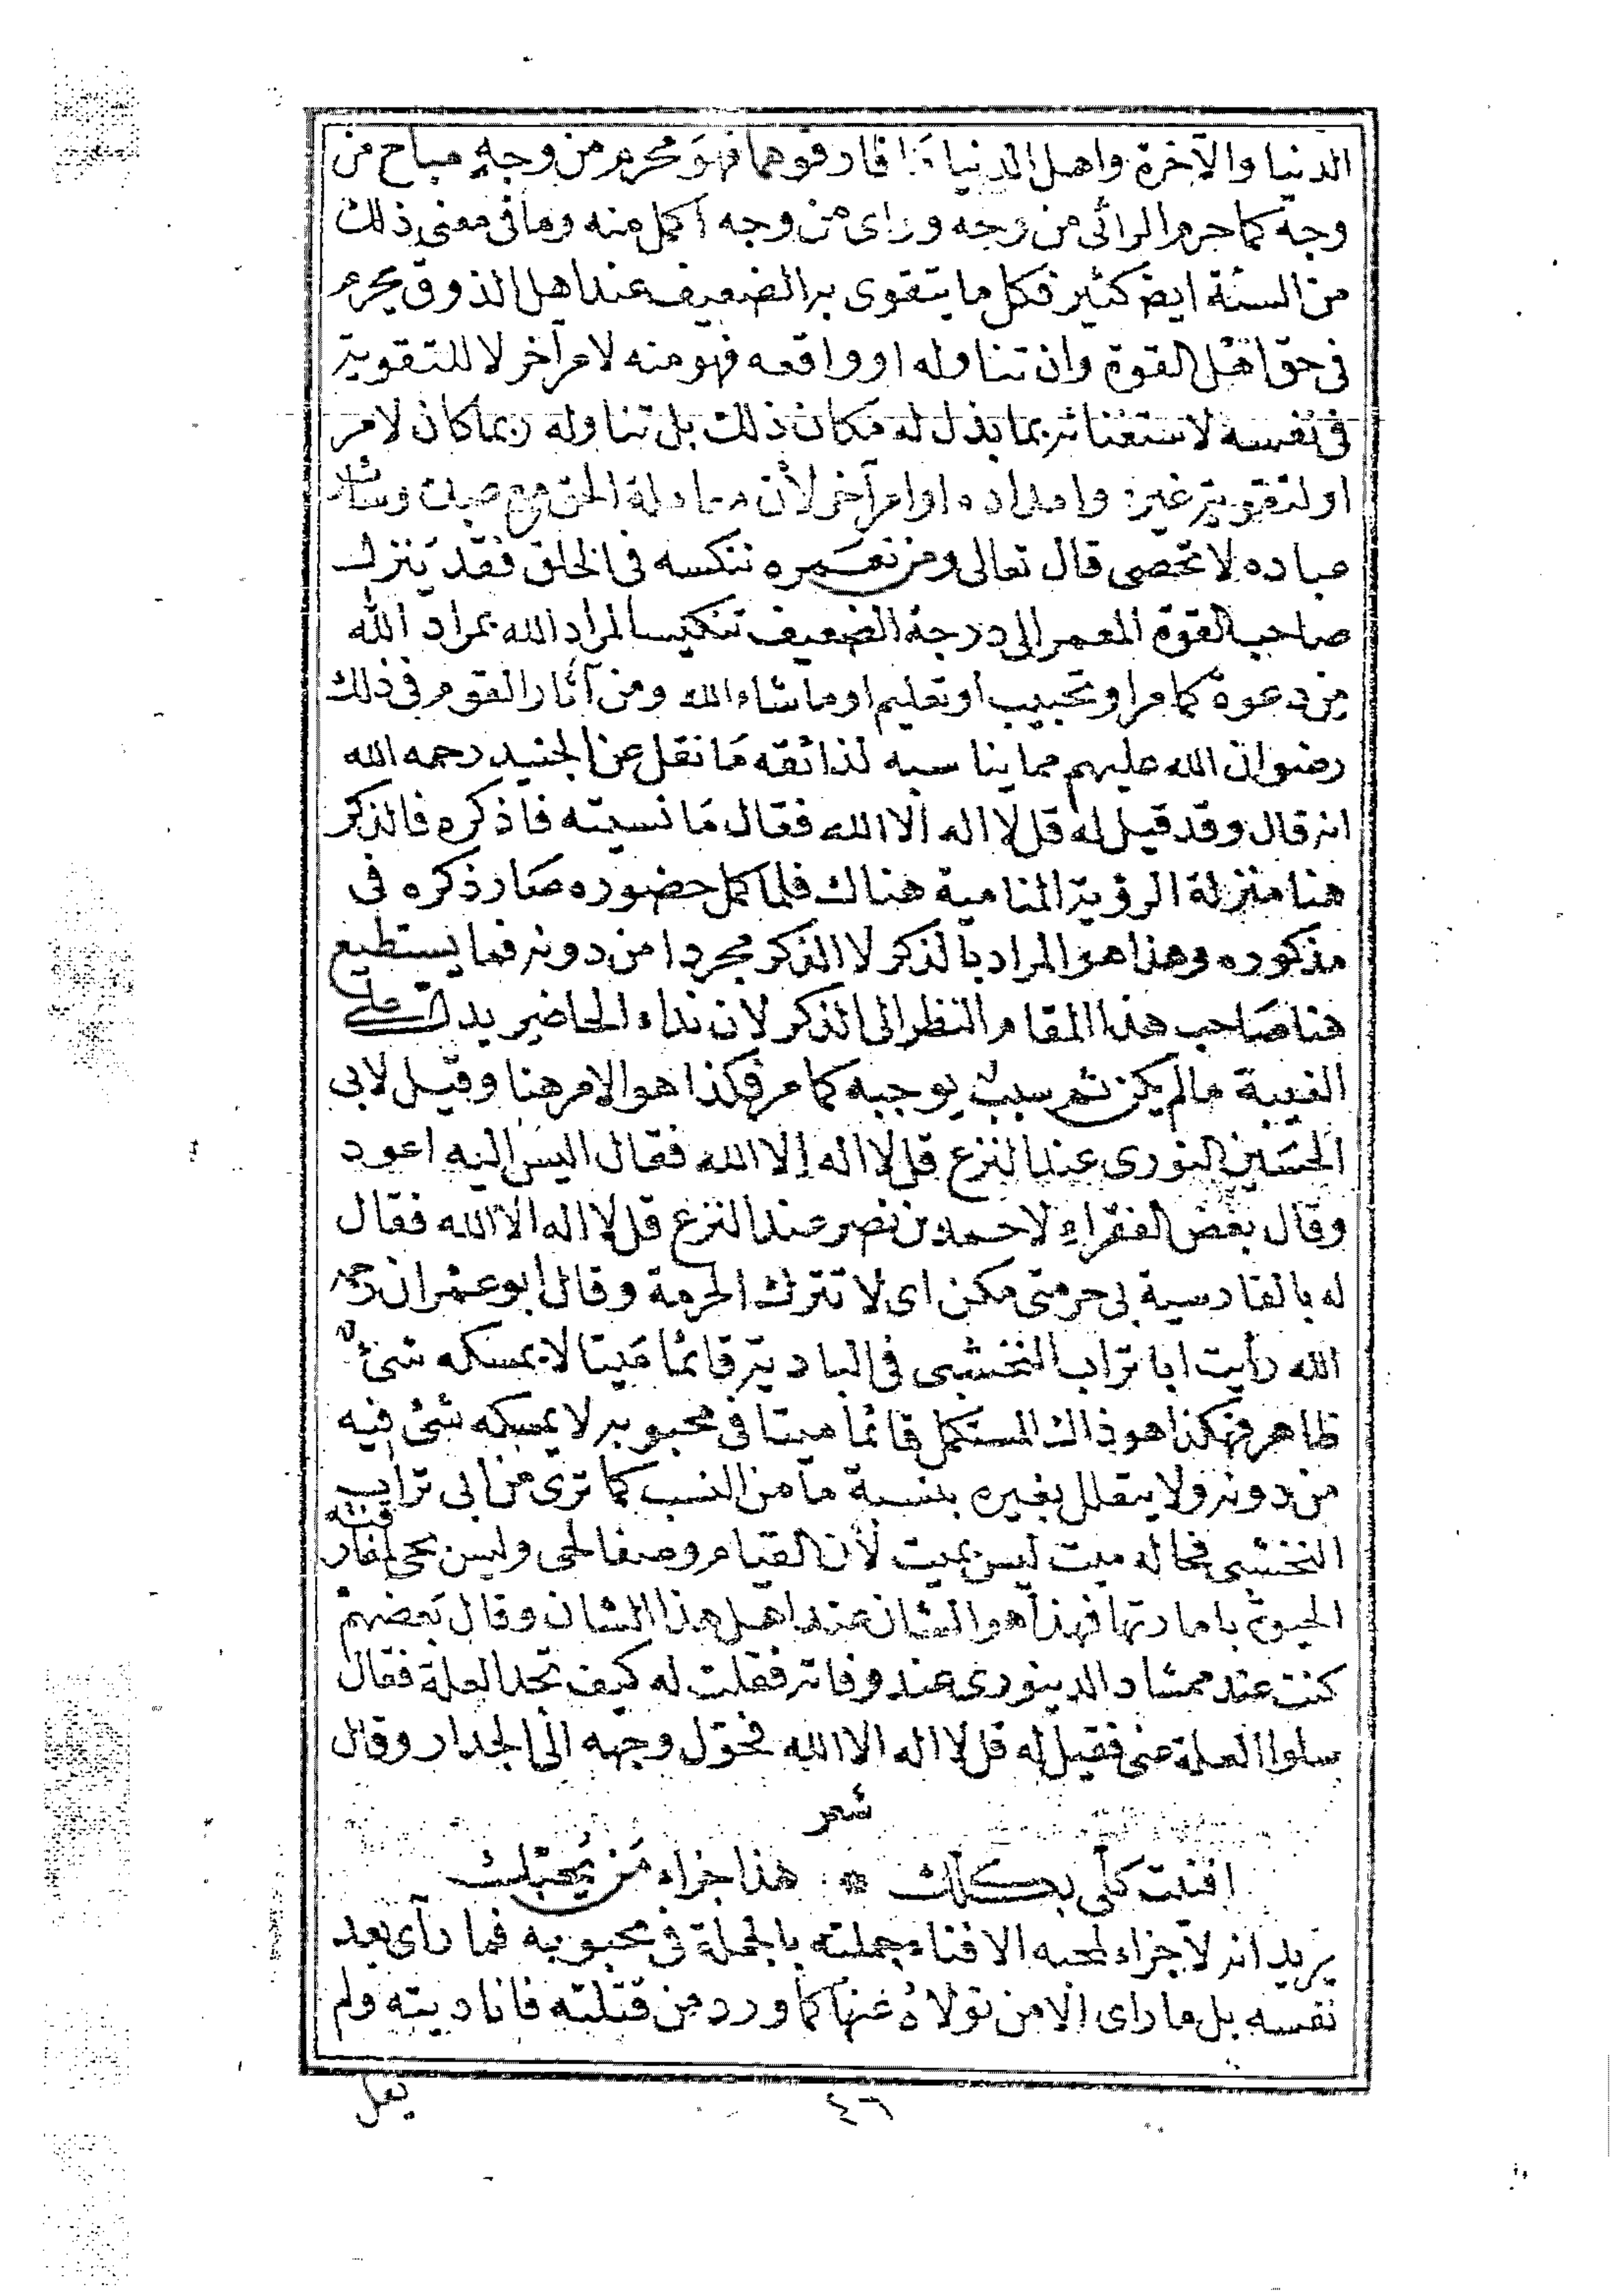 الدنيا والآخرة واهل الدنيا اذا فارقوهما فهو محرم من وجه مباح من
وجه كما حرم الرائى من وجه وراى من وجه اكمل منه وما فى معنى ذلك
من السنة ايضا كثير فكل ما يتقوى به الضعيف عند اهل الذوق يحرم
فى حق اهل القوة وان تناوله او واقعه فهو منه لامر آخر لا للتقوية
فى نفسه لاستغنائه بما بذل له مكان ذلك بل تناوله ربما كان لامر
او لتقوية غيره وامداده او امر آخر لأن معاملة الحق مع
عباده لا تحصى قال تعالى ومن نعمره ننكسه فى الخلق فقد ينزل
صاحب القوة المعمر الى درجة الضعيف تنكيسا لمراد الله بمراد الله
من دعوة كما مر او تحبيب او تعليم او ما شاء الله ومن آثار القوم فى ذلك
رضوان الله عليهم مما يناسبه لذائقه مَا نقل عن الجنيد رحمه الله
انه قال وقد قيل له قل لا اله الا الله فقال مَا نسيته فاذكره فالذكر
هنا منزلة الرؤية المنامية هناك فلما كمل حضوره صار ذكره فى
مذكوره وهذا هو المراد بالذكر لا الذكر مجردا من دونه فما يستطيع
هنا صَاحب هذا المقام النظر الى الذكر لان نداء الحاضر يدل على
الغيبة ما لم يكن ثم سبب يوجبه كما مر فكذا هو الامر هنا وقيل لابى
الحسين النورى عند النزع قل لا اله إلا الله فقال اليس اليه اعود
وقال بعض الفقراء لاحمد بن نصر عند النزع قل لا اله الا الله فقال
له بالفارسية بى حرمتى مكن اى لا تترك الحرمة وقال ابو عمران رحمه
الله رأيت ابا تراب النخشبى فى البادية قائما مَيتا لا يمسكه شئ
ظاهر فهكذا هو ذاك المستكمل قائما ميتا فى محبوبه لا يمسكه شئ فيه
من دونه ولا يتقلل بغيره بنسبة ما من النسب كما ترى من ابى تراب
النخشبى فحاله ميت ليس بميت لأن القيام وصف الحى وليس بحى لمفارقته
الحيوة بامارتها فهذا هو الشان عند اهل هذا الشان وقال بَعضهم
كنت عند ممشاد الدينورى عند وفاته فقلت له كيف تجد العلة فقال
سلوا العلة عنى فقيل له قل لا اله الا الله فحوّل وجهه الى الجدار وقال
شعر
افنيت كلّى بكلّك * هذا جزاء مَن يُحبّك
يريد انه لا جزاء لمحبه الا فناء جملته بالجملة فى محبوبه فما رآى بعد
نفسه بل ما راى الا من تولاهُ عنها كما ورد من قتلته فانا ديته ولم
يعل
٤٦